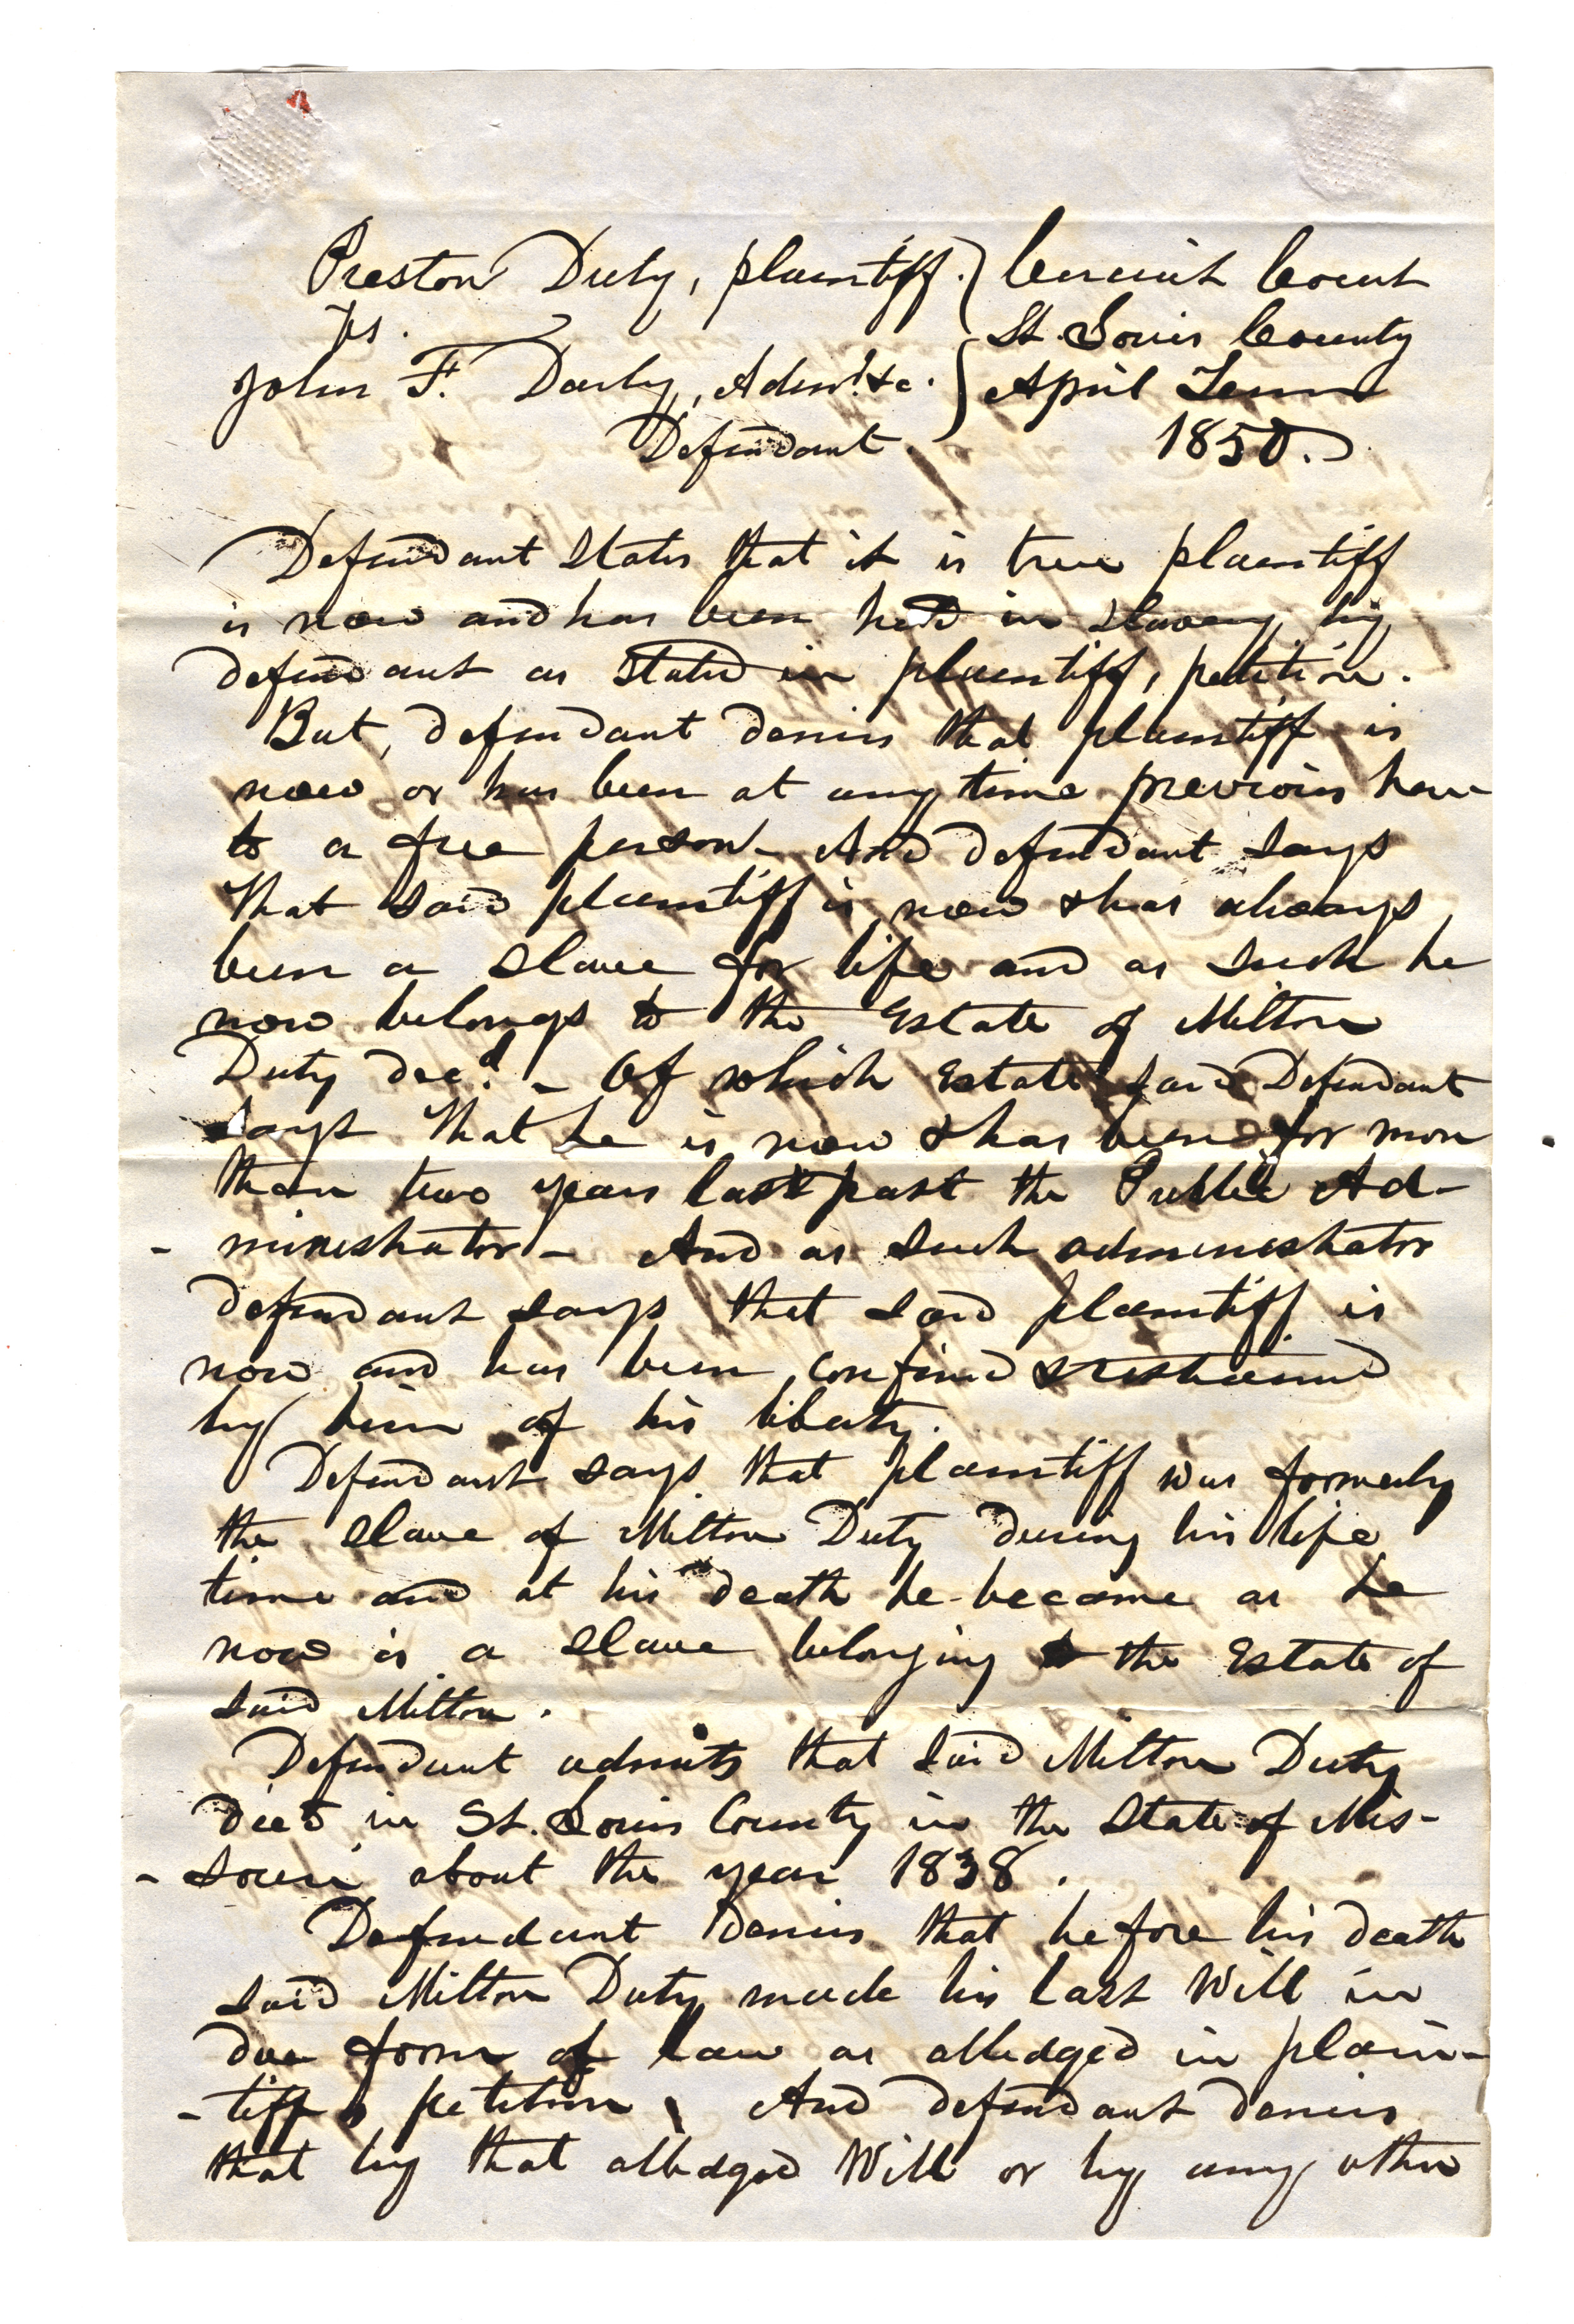 Preston Duty, plaintiff. } Circuit Court
vs. St. Louis County
John F. Darby, Admr. &c. } April Term
Defendant. 1850.
Defendant States that it is true plaintiff
is now and has been held in slavery by
defendant as stated in plaintiff, petition.
But, defendant denies that plaintiff is
now or has been at any time previous here-
to a free person - And defendant says
that said plaintiff is now & has always,
been a slave for life and as such he
now belongs to the Estate of Milton
Duty decd. - Of which Estate said Defendant
says that he is now & has been for more
than two years last past the Public Ad-
- ministrator - And as such administrator
defendant says that said plaintiff is
now and has been confined & restrained
by him of his liberty.
Defendant says that plaintiff was formerly
the slave of Milton Duty during his life
time and at his death he became as he
now is a slave belonging to the Estate of
said Milton.
Defendant admits that said Milton Duty
died in St. Louis County in the State of Mis-
- souri about the year 1838.
Defendant denies that before his death
said Milton Duty made his last Will in
due form of law as alledged in plain-
- tiffs petition, And defendant denies
that by that alledged Will or by any other